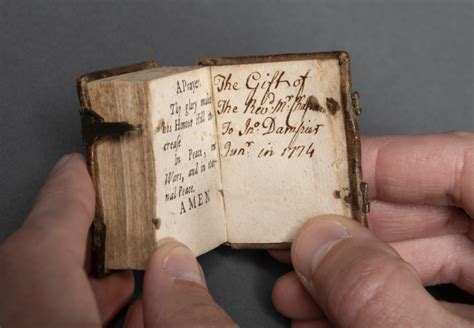 A Prayer.
Thy glory make
his Honour still in
crease
in Peace, in
Wars, and in eter
nal Peace.
AMEN
The Gift of
The Revd. Mr.
To Jno. Dampier
Junr. in 1774